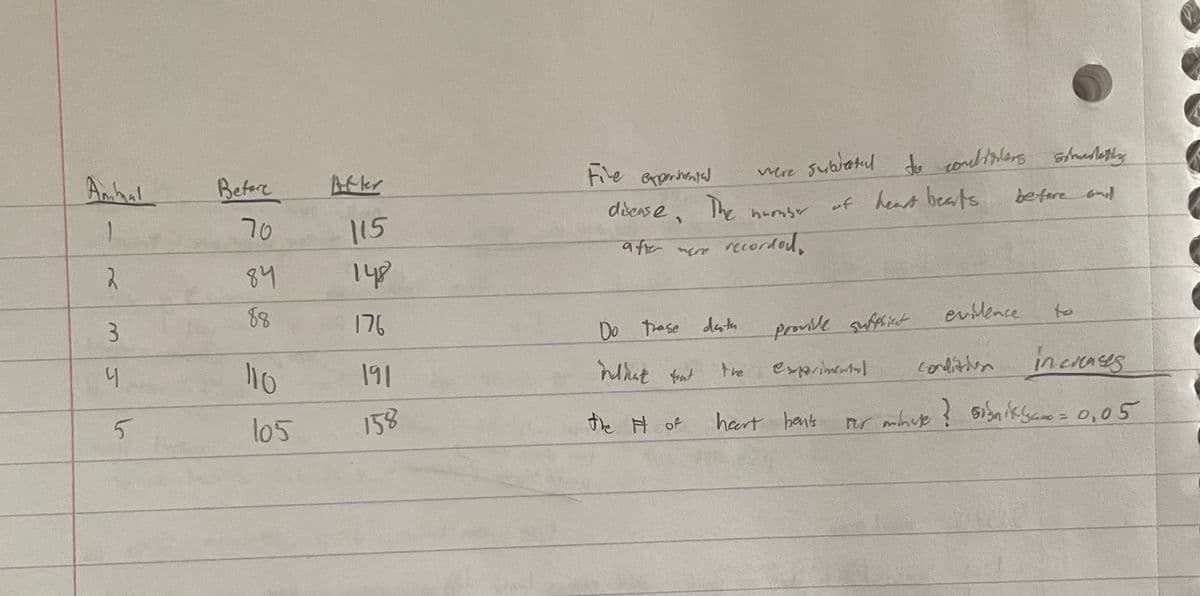 Animal Before After
1 70 115
2 84 148
3 88 176
4 110 191
5 105 158
Five experimental were subjected to conditions simulating
disease. The number of heart beats before and
after were recorded.
Do these data provide sufficient evidence to
indicate that the experimental condition increases
the # of heart beats per minute? significance = 0.05